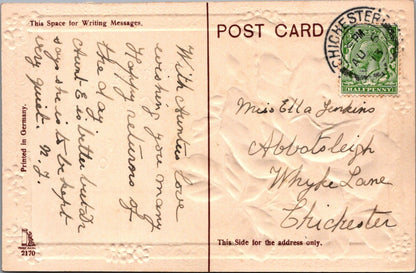 This Space for Writing Messages.
With Aunties love
wishing you many
Happy returns of
the day
Aunt E is better but Dr
says she is to be kept
very quiet. N. J.
Printed in Germany.
2170
POST CARD
CHICHESTER
HALFPENNY
Miss Ella Jenkins
Abbotsleigh
Whyke Lane
Chichester
This Side for the address only.